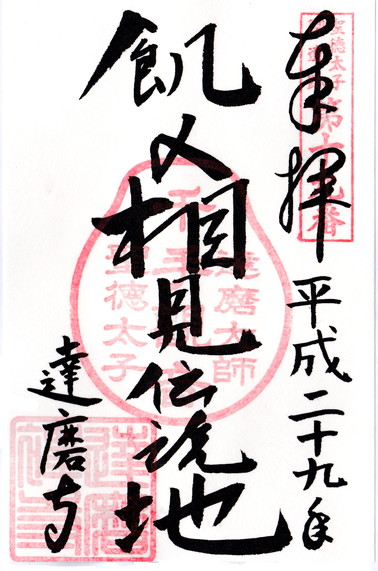 奉拝
平成二十九年
飢人相見伝説地
達磨寺
聖徳太子
達磨大師
千手観音
聖徳太子